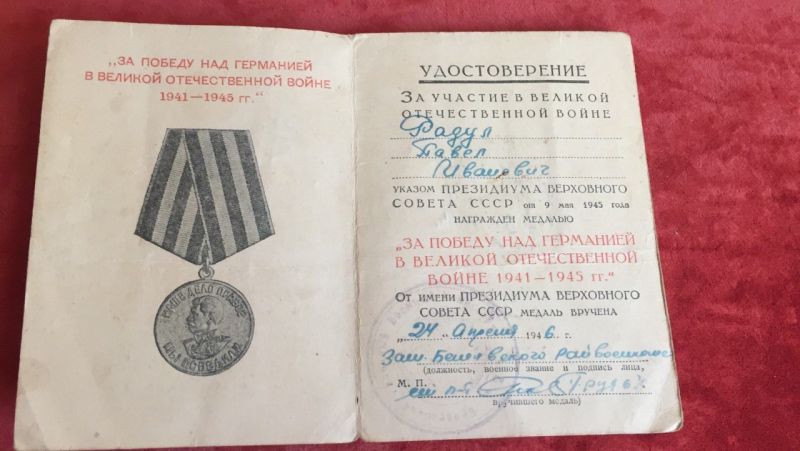 „ЗА ПОБЕДУ НАД ГЕРМАНИЕЙ
В ВЕЛИКОЙ ОТЕЧЕСТВЕННОЙ ВОЙНЕ
1941—1945 гг.“
НАШЕ ДЕЛО ПРАВОЕ
МЫ ПОБЕДИЛИ
УДОСТОВЕРЕНИЕ
ЗА УЧАСТИЕ В ВЕЛИКОЙ
ОТЕЧЕСТВЕННОЙ ВОЙНЕ
Радул
Павел
Иванович
УКАЗОМ ПРЕЗИДИУМА ВЕРХОВНОГО
СОВЕТА СССР от 9 мая 1945 года
НАГРАЖДЕН МЕДАЛЬЮ
„ЗА ПОБЕДУ НАД ГЕРМАНИЕЙ
В ВЕЛИКОЙ ОТЕЧЕСТВЕННОЙ
ВОЙНЕ 1941—1945 гг.“
ОТ ИМЕНИ ПРЕЗИДИУМА ВЕРХОВНОГО
СОВЕТА СССР МЕДАЛЬ ВРУЧЕНА
„24“ апреля 1946 г.
(должность, военное звание и подпись лица,
М. П.
вручившего медаль)